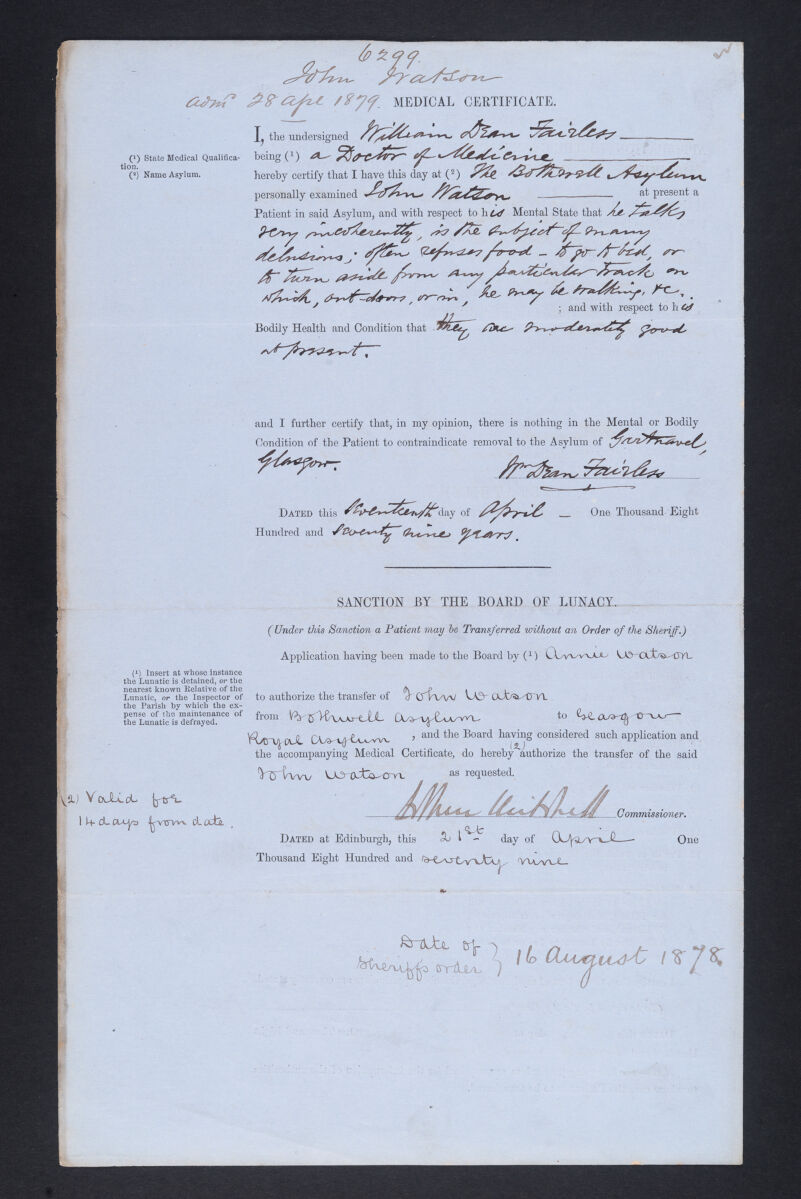 6299.
John Watson
Adm^d 28 Apl 1879. MEDICAL CERTIFICATE.
I, the undersigned William Dean Fairless
being (¹) a Doctor of Medicine
hereby certify that I have this day at (²) The Bothwell Asylum
personally examined John Watson at present a
Patient in said Asylum, and with respect to his Mental State that he talks
very incoherently, is the subject of many
delusions; often refuses food – to go to bed, or
to turn aside from any particular track on
which, out-doors, or in, he may be walking, &c.
; and with respect to his
Bodily Health and Condition that they are moderately good
at present.
(¹) State Medical Qualifica-
tion.
(²) Name Asylum.
and I further certify that, in my opinion, there is nothing in the Mental or Bodily
Condition of the Patient to contraindicate removal to the Asylum of Gartnavel,
Glasgow. Wm Dean Fairless
DATED this Seventeenth day of April – One Thousand Eight
Hundred and Seventy nine years.
SANCTION BY THE BOARD OF LUNACY.
(Under this Sanction a Patient may be Transferred without an Order of the Sheriff.)
Application having been made to the Board by (¹) Annie Watson
(¹) Insert at whose instance
the Lunatic is detained, or the
nearest known Relative of the
Lunatic, or the Inspector of
the Parish by which the ex-
pense of the maintenance of
the Lunatic is defrayed.
to authorize the transfer of John Watson
from Bothwell Asylum to Glasgow
Royal Asylum, and the Board having considered such application and
the accompanying Medical Certificate, do hereby (2) authorize the transfer of the said
John Watson as requested.
(2) Valid for
14 days from date.
Arthur Mitchell Commissioner.
DATED at Edinburgh, this 21st day of April One
Thousand Eight Hundred and seventy nine
Date of
Sheriff's order } 16 August 1878.